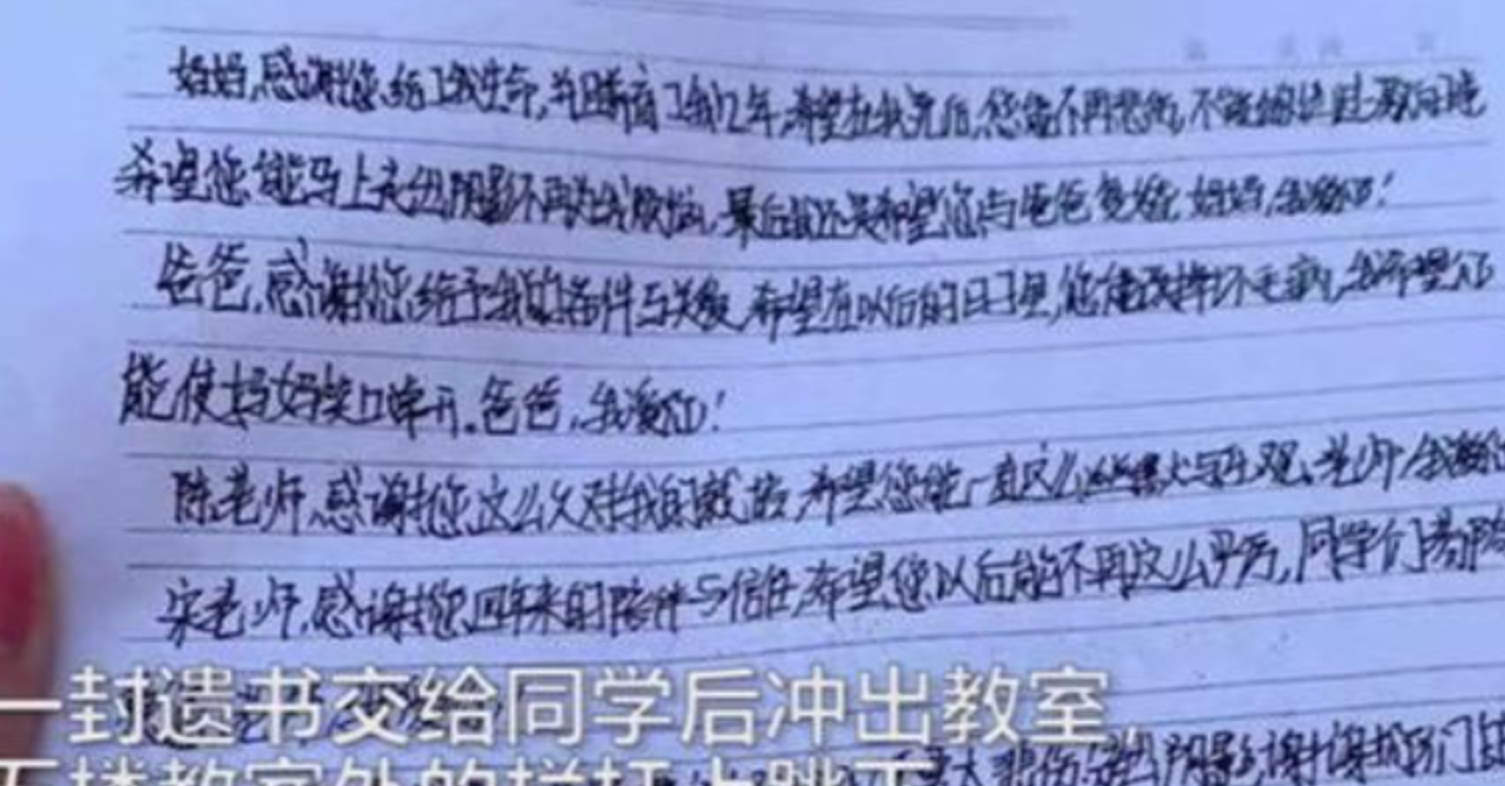 妈妈,感谢您给了我生命,并哺育了我12年,希望在我死后,您能不再悲伤,不
希望您能马上走出阴影不再为我烦恼,最后我还是希望您与爸爸复婚,妈妈,我爱您!
爸爸,感谢您给予我的条件与关爱,希望在以后的日子里,您能改掉坏毛病,我希望您
能使妈妈笑口常开。爸爸,我爱您!
陈老师,感谢您这么久对我的教诲,希望您能一直这么 与乐观,老师,我
宋老师,感谢您四年来的陪伴与信任,希望您以后能不再这么 ,同学们
一封遗书交给同学后冲出教室,
五楼教室外的栏杆上跳下
悲伤,走出阴影,谢谢 们